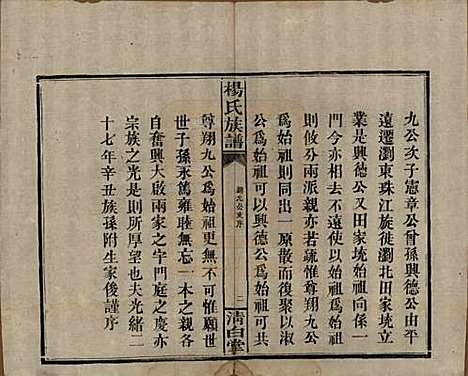 九公次子憲章公曾孫興德公由平
遠遷瀏東珠江旋徙瀏北田家垅立
業是興德公又田家垅始祖同係一
門今亦相去不遠使以始祖爲始祖
則攸分兩派親亦若疏惟尊翔九公
爲始祖則同出一原散而復聚以淑
公爲始祖可以興德公爲始祖可共
楊氏族譜
翔九公支序
二
清白堂
尊翔九公爲始祖更無不可惟願世
世子孫永篤雍睦無忘一本之親各
自奮興大啟兩家之宇門庭之慶亦
宗族之光是則所厚望也夫光緒二
十七年辛丑族孫附生家俊謹序